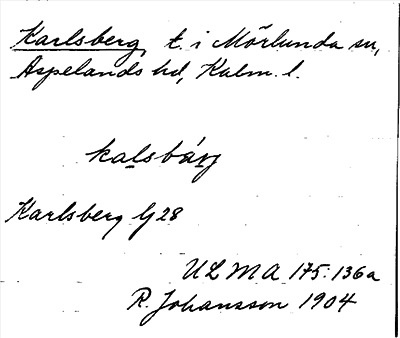 Karlsberg, t. i Mörlunda sn,
Aspelands hd, Kalm. l.
kalsbárj
Karlsberg Gj 28
ULMA 175:136a
R. Johansson 1904